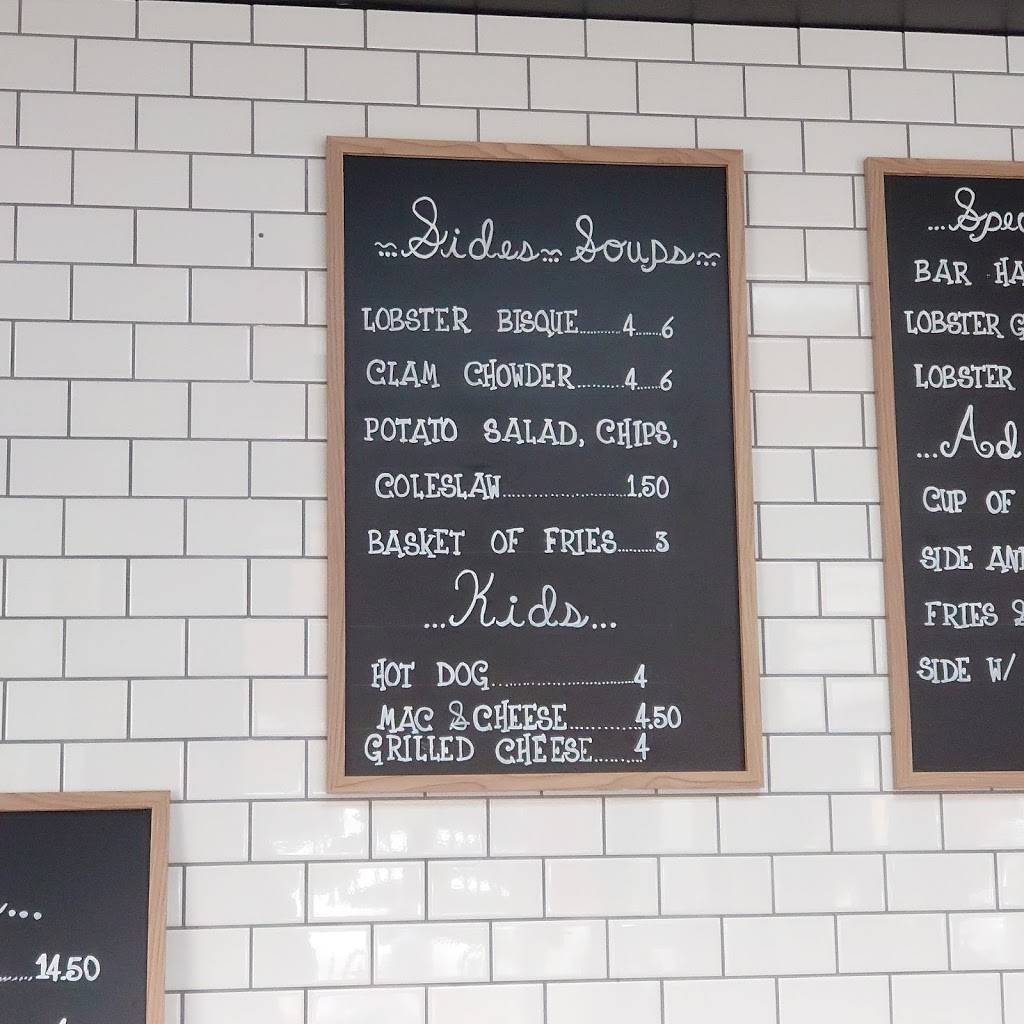 ~Sides~Soups~
LOBSTER BISQUE........4......6
CLAM CHOWDER.........4.....6
POTATO SALAD, CHIPS,
COLESLAW........................1.50
BASKET OF FRIES........3
...Kids...
HOT DOG............................4
MAC & CHEESE.............4.50
GRILLED CHEESE.........4
BAR
LOBSTER
LOBSTER
CUP OF
SIDE
FRIES &
SIDE W/
14.50